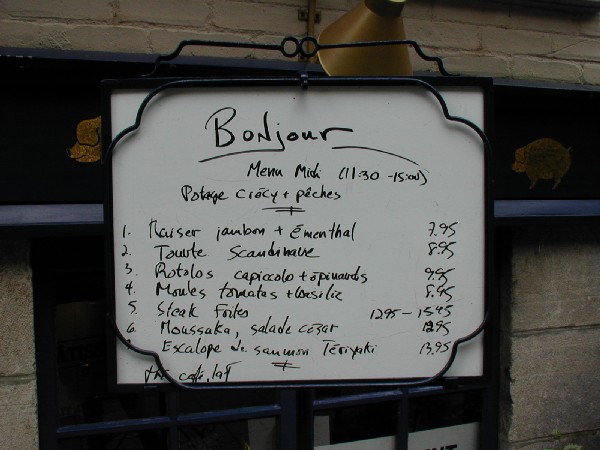 Bonjour
Menu Midi (11:30 -15:00)
Potage crécy + pêches
1. Kaiser jambon + émenthal 7.95
2. Tourte Scandinave 8.95
3. Rotolos capicolo + épinards 9.95
4. Moules tomates + basilic 8.95
5. Steak Frites 12.95 - 15.95
6. Moussaka, salade césar 12.95
Escalope de saumon Tériyaki 13.95
café,